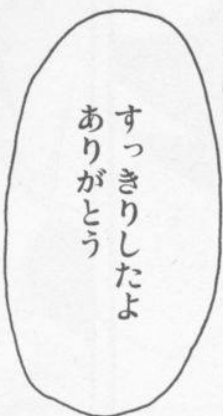 すっきりしたよ
ありがとう